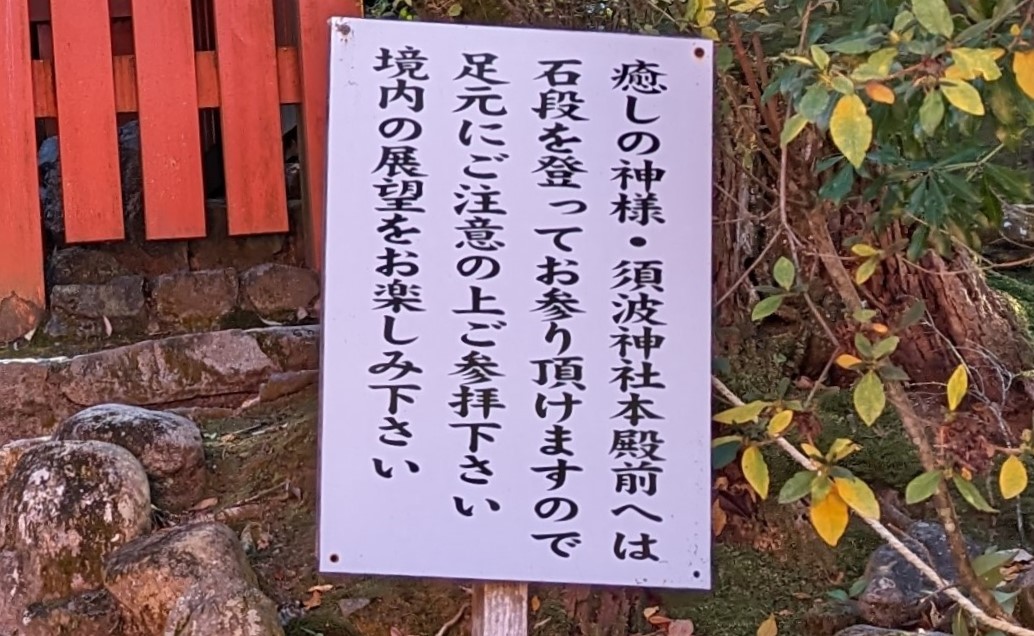 癒しの神様・須波神社本殿前へは
石段を登ってお参り頂けますので
足元にご注意の上ご参拝下さい
境内の展望をお楽しみ下さい